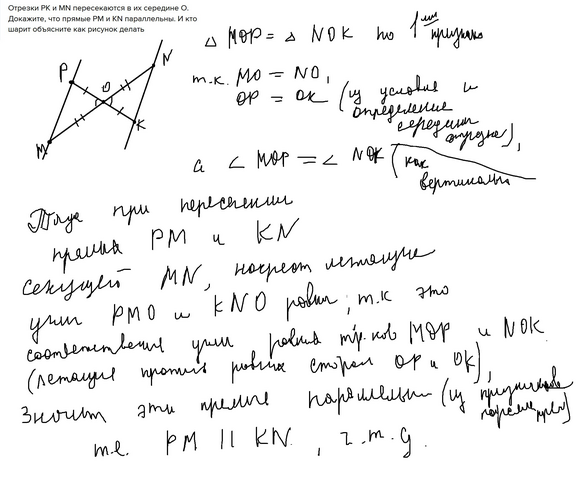 Отрезки PK и MN пересекаются в их середине O.
Докажите, что прямые PM и KN параллельны. И кто
шарит объясните как рисунок делать
P
N
O
K
M
△ MOP = △ NOK по 1 признаку
т.к. MO = NO,
OP = OK (из условия и
определение
середины
отрезка),
а ∠ MOP = ∠ NOK (как
вертикальные
Тогда при пересечении
прямых PM и KN
секущей MN, накрест лежащие
углы PMO и KNO равны, т.к это
соответственные углы равных тр.ков MOP и NOK
(лежащие против равных сторон OP и OK),
Значит эти прямые параллельны (из признаков
паралл прям)
т.е. PM || KN , ч.т.д.